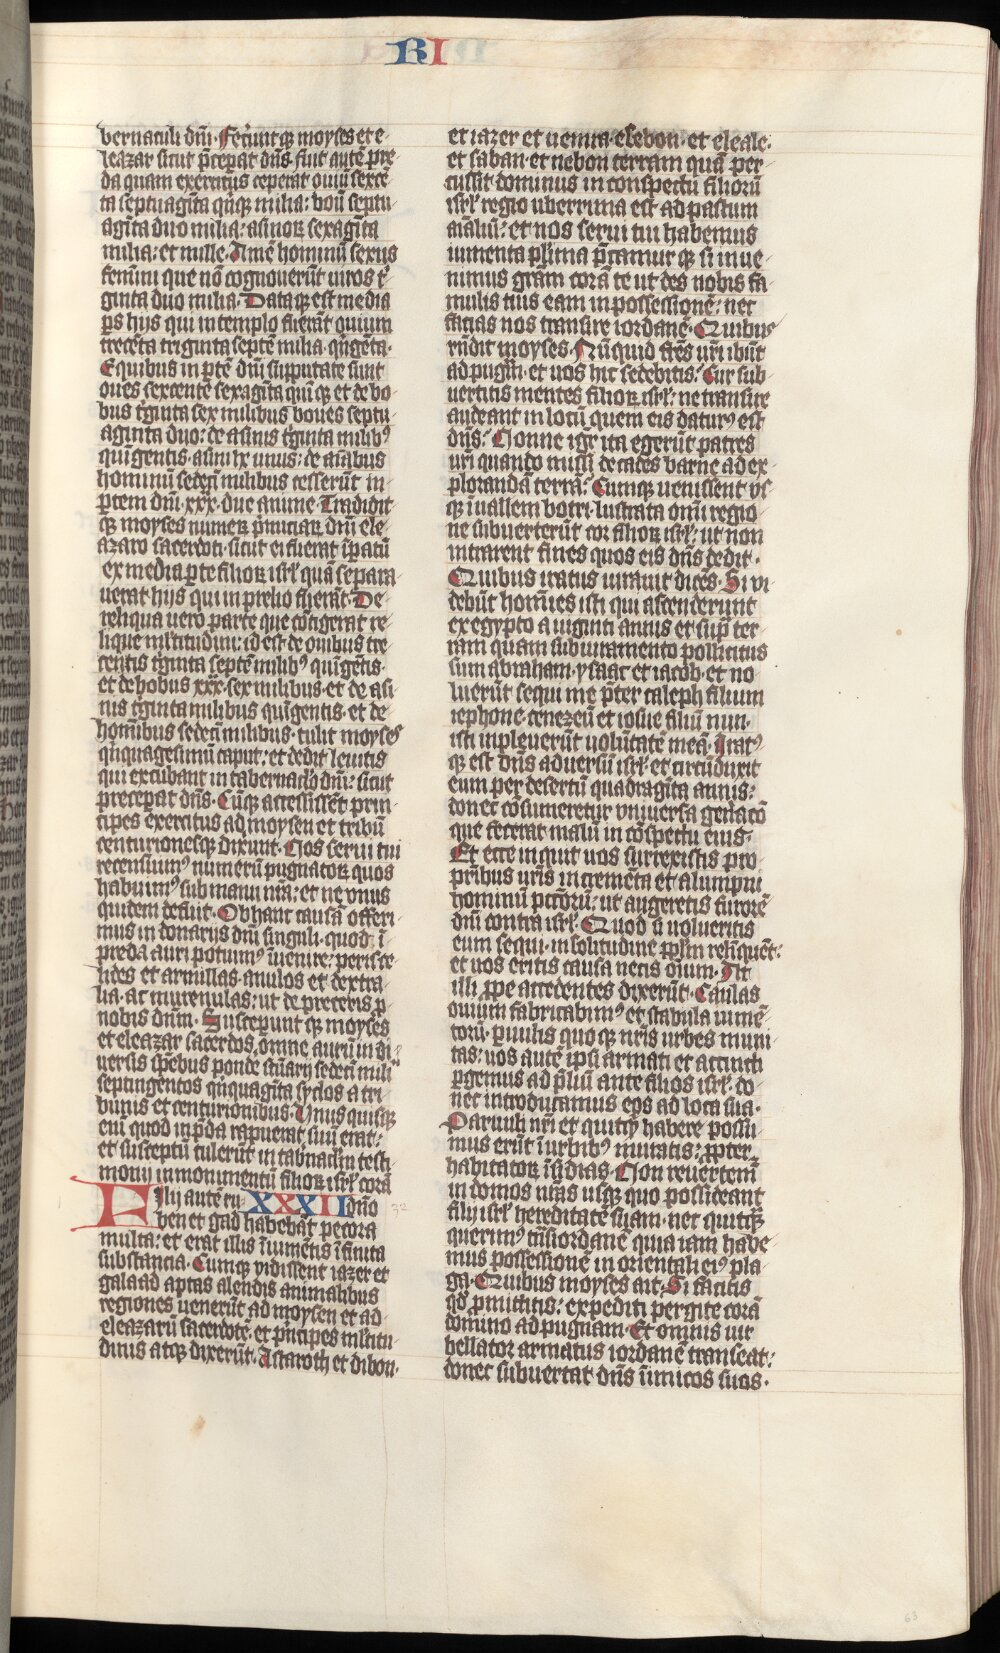 RI
vernaculi dnī. Feceruntqȝ moyses et e-
leazar sicut p̄ceperat dn̄s. fuit autē pre-
da quam exercitus ceperat ouiū sexce-
ta septuagīta qn̄qȝ milia: boū septu-
agīta duo milia: asinoꝝ sexagīta
milia: et mille. Aīme hominū sexus
feminī que nō cognouerūt viros tͥ-
ginta duo milia. Dataqȝ est media
ꝑs hijs qui in templo fuerāt ouium
trecēta triginta septē milia. qn̄gēta.
E quibus in ꝑtē dnī supputate sunt
oues sexcente sexagīta quīqȝ et de bo-
bus tͥginta sex milibus boues septu-
aginta duo: de asinis tͥginta milibꝰ
quīgentis. asini lx vnus: de aīabus
hominū sedecī milibus cesserūt in
ꝑtem dnī. xxx. due anime. Tradidit
qȝ moyses numerꝝ pͥmiciaꝝ dnī ele-
azaro sacerdoti. sicut ei fuerat īꝑatū
ex media ꝑte filioꝝ isrl̄ quā separa-
uerat hijs qui in prelio fuerāt. De
reliqua vero parte que cōtigerat re-
lique ml̄titudini: id est de ouibus tre-
centis tͥginta septē milibꝰ quigētis.
et de bobus xxx. sex milibus. et de asi-
nis tͥginta milibus quīgentis. et de
homībus sedecī milibus. tulit moyses
qn̄quagesimū caput: et dedit leuitis
qui excubant in tabernacl̄o dnī: sicut
preceꝑat dn̄s. Cūqȝ accessissēt prin-
cipes exercitus ad moysen et tribū
centurionesqȝ dixunt. Nos serui tui
recensuimꝰ numerū pugnatoꝝ quos
habuimꝰ sub manu nr̄a: et ne vnus
quidem defuit. Ob hanc causā offeri-
mus in donarijs dnī singuli. quod ī
preda auri potuimꝰ īuenire: perisce-
lides et armillas. anulos et dextra-
lia. ac murenulas: ut de preceris ꝑ
nobis dnm̄. Susceperuntqȝ moyses
et eleazar sacerdos, omne aurū in di-
uersis spēbus pondē scūarij sedecī mili
septingentos qn̄quagīta syclos a tri-
bunis et centurionibus. Vnusquisqȝ
enī quod in p̄da rapuerat suū erat:
et susceptū tulerūt in tabnacl̄m testi-
monij in monumentū filioꝝ isrl̄ corā
Filij autē ru- XXXII dn̄o
ben et gad habebāt pecora
multa: et erat illis ī iumētis īfinita
substancia. Cumqȝ vidissent iazer et
galaad aptas alendis animalibus
regiones venerūt ad moysen et ad
eleazarū sacerdotē. et pͥncipes ml̄titu-
dinis atqȝ dixerūt. Astaroth et dibon.
et iazer et nemra. esebon. et eleale.
et saban. et nebon terram quā per-
cussit dominus in conspectu filiorū
isrl̄ regio vberrima est ad pastum
aīaliū: et nos serui tui habemus
iumenta pl̄ima p̄camur qȝ si inue-
nimus grām corā te ut des nobis fa-
mulis tuis eam in possessionē: nec
facias nos transire iordanē. Quibus
rn̄dit moyses. Nūquid frēs vr̄i ibūt
ad pugnā. et vos hic sedebitis: Cur sub-
uertitis mentes filioꝝ isrl̄: ne transire
audeant in locū quem eis daturꝰ est
dn̄s: Nonne igr̄ ita egerūt patres
vr̄i quando missi de cades barne ad ex-
plorandā terrā: Cumqȝ venissent vs-
qȝ ī uallem botri. lustrata om̄i regio-
ne subuerterūt cor filioꝝ isrl̄: ut non
intrarent fines quos eis dn̄s dedit.
Quibus iratus iurauit dicēs. Si vi-
debūt homīes isti qui ascenderunt
ex egypto a viginti annis et supͣ ter-
ram quam sub iuramento pollicitus
sum abraham. ysaac et iacob. et no-
luerūt sequi me p̄ter caleph filium
iephone. cenezeū et iosue filiū nun.
isti inpleuerūt volūtatē meā. Iratꝰ
qȝ est dn̄s aduersū isrl̄. et circūduxit
eum per desertū quadragita annis:
donec cōsumeretur vniuersa gen̄acō
que fecerat malū in cōspectu eius.
Et ecce inquit vos surrexistis pro
pr̄ibus vr̄is incremēta et alumpni
hominū pctōrū: ut augeretis furorē
dnī contra isrl̄. Quod si nolueritis
eum sequi. in solitudine ppl̄m relīquet:
et vos eritis causa necis oīum. At
illi ꝓpe accedentes dixerūt. Caulas
ouium fabricabimꝰ et stabula iumē-
torū. ꝑuulis quoqȝ nr̄is vrbes muni-
tas: nos autē ipsi armati et accincti
ꝑgemus ad p̄liū ante filios isrl̄. do-
nec introducamus eos ad loca sua.
Paruuli nr̄i et quicqͥȝ habere possu-
mus erūt ī vrbibꝰ muratis: ꝓpter
habitatoꝝ īsidias. Non reuertem̄
in domos nr̄as usqȝ quo possideant
filij isrl̄ hereditatē suam. nec quicqȝ
querimꝰ trās iordanē quia iam habe-
mus possessionē in orientali eiꝰ pla-
ga. Quibus moyses ait. Si facitis
qd̓ ꝓmittitis: expediti pergite corā
domino ad pugnam. Et omnis vir
bellator armatus iordanē transeat:
donec subuertat dn̄s inimicos suos.
32
63